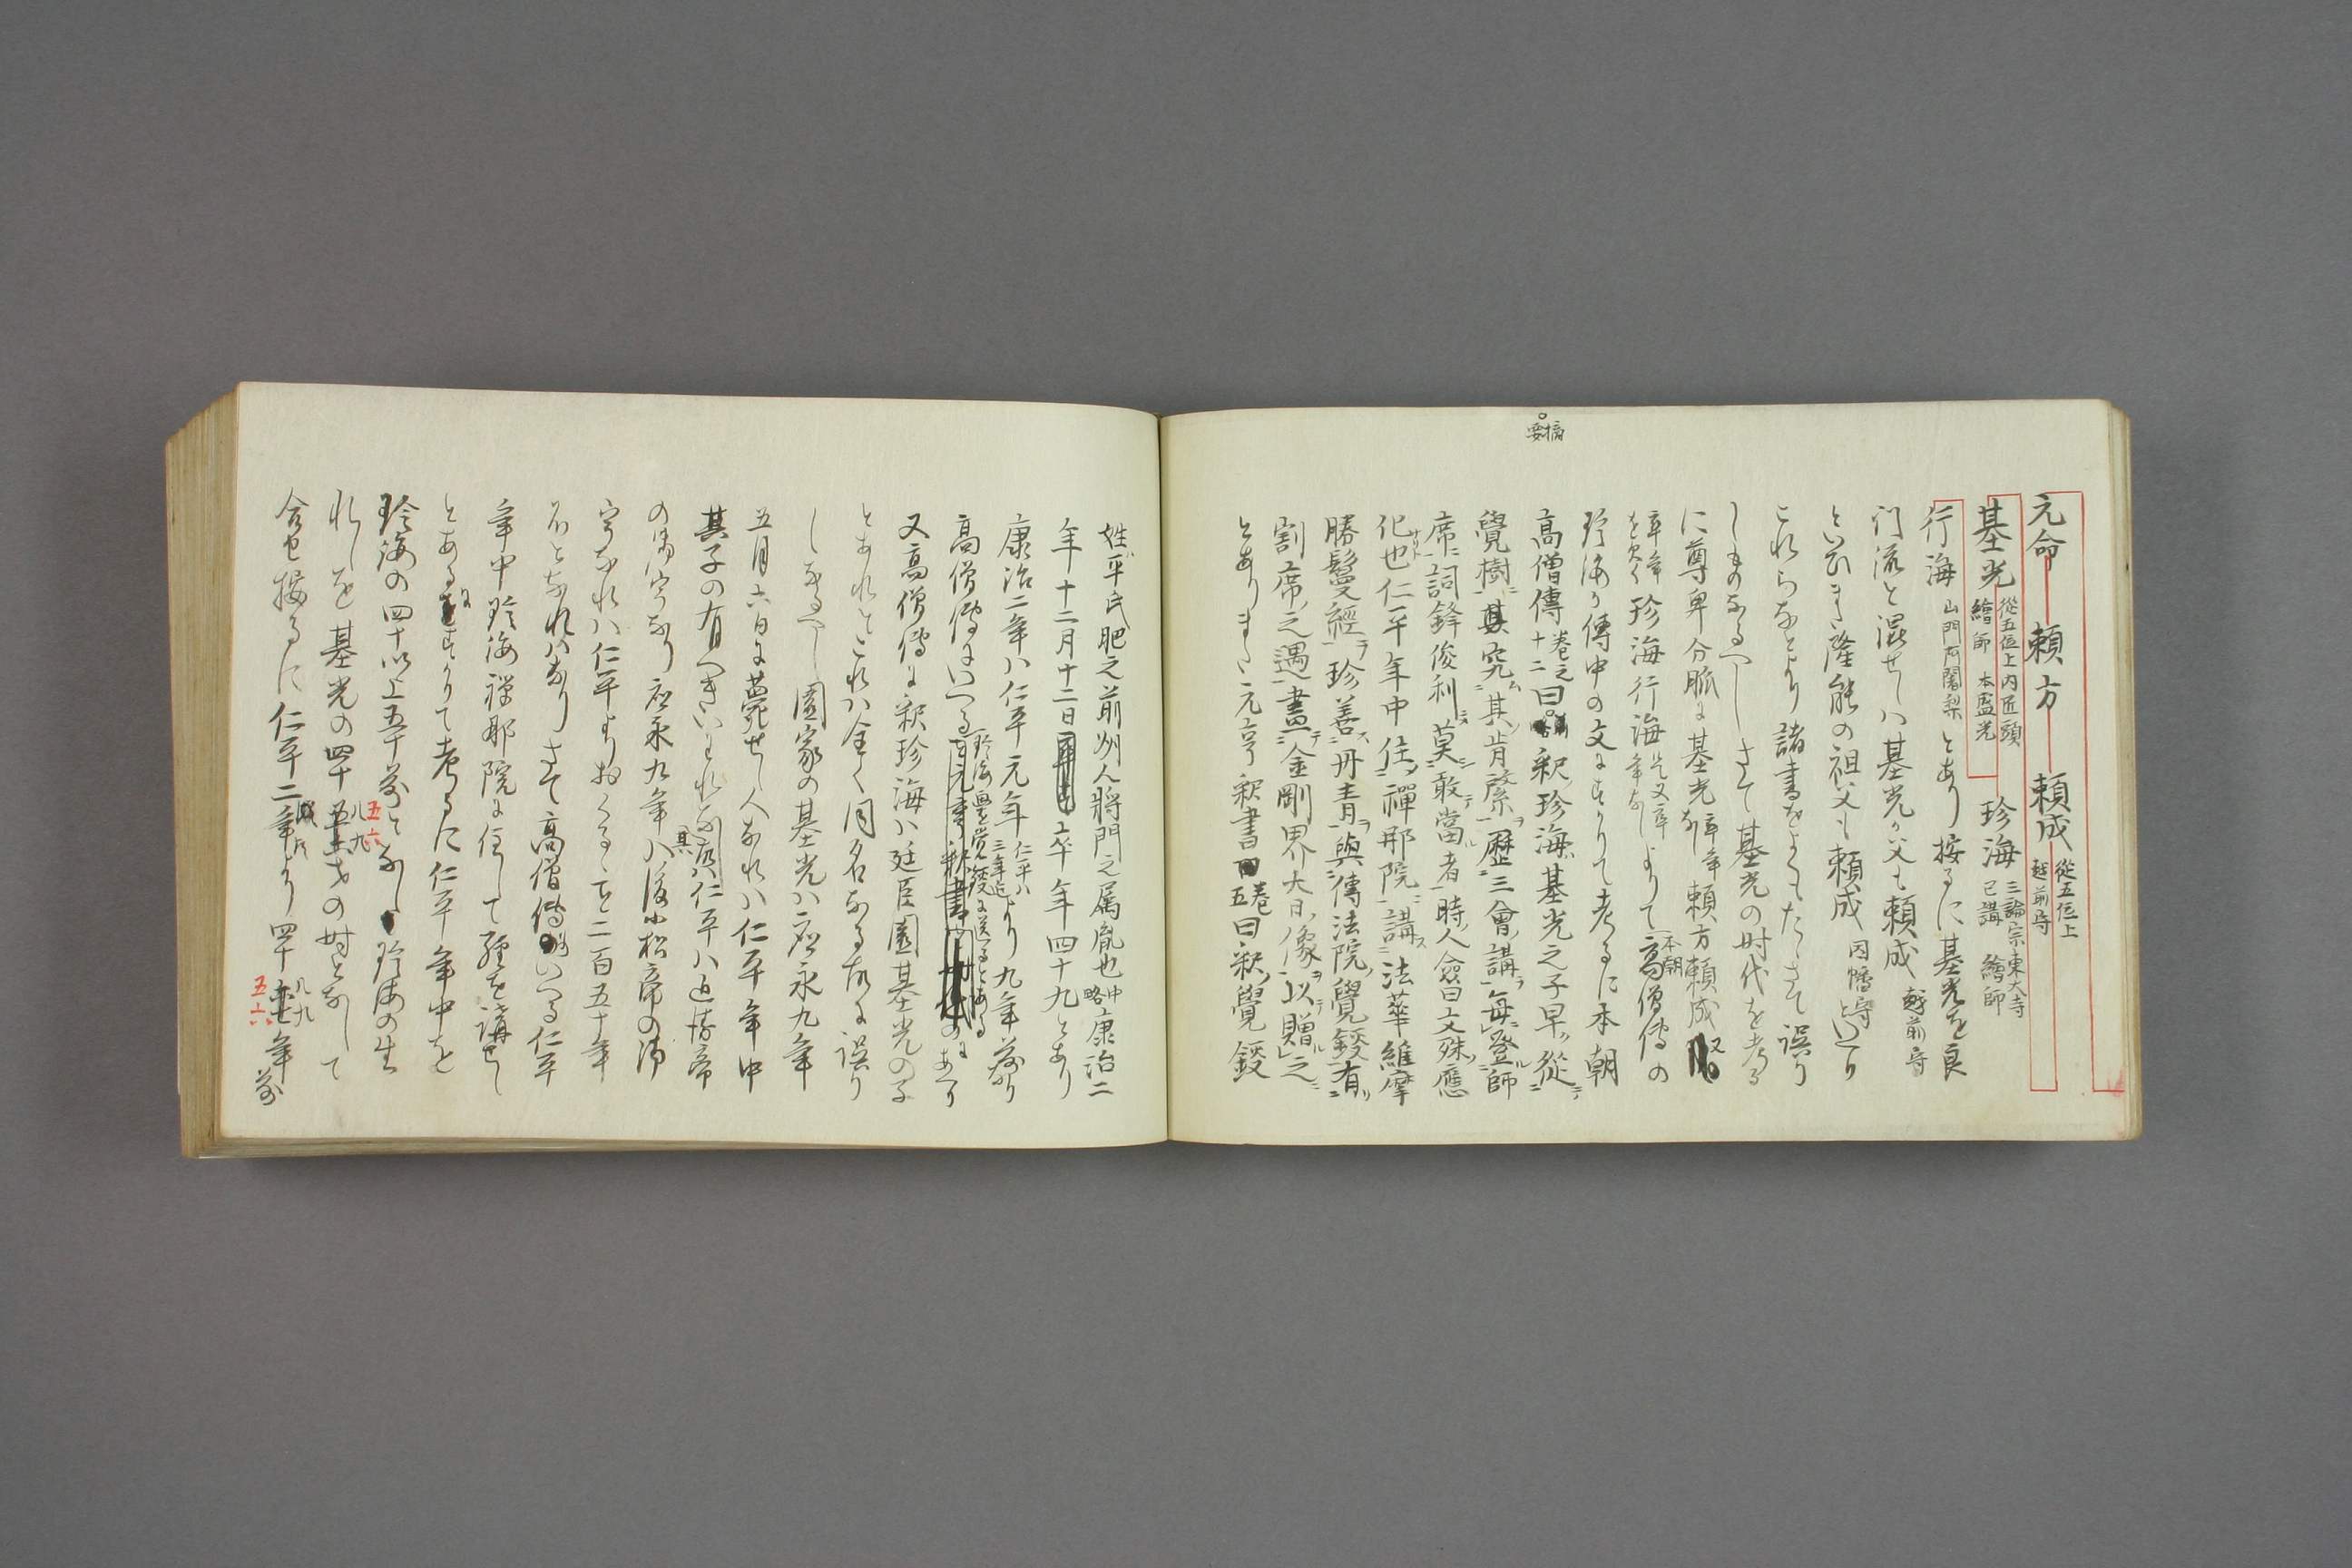 元命 頼方 頼成 從五位上 越前守
基光 從五位上内匠頭 繪師 本盛光 珍海 三論宗東大寺 已講 繪師
行海 山門阿闍梨 とあり按るに基光を良
门流と混せしハ基光か父も頼成 越前守
といひまた隆能の祖父も頼成 因幡守といへり
これらなとより諸書をよくもたゝさて誤り
しものなるへしさて基光の时代を考る
に尊卑分脈に基光 卒年 頼方頼成 又
卒年を欠く 珍海行海 是又卒年なし よりて 本朝高僧傳の
珍海か傳中の文によりて考るに本朝
高僧傳 卷之十二 曰 摘要 釈珍海基光之子早從
覺樹其究其肯綮歴三會講毎登師
席詞鋒俊利莫敢當者時人僉曰文殊應
化也仁平年中住禪那院講法華維摩
勝鬘經珍善丹青與傳法院覺鑁有
割席之遇畫金剛界大日像以贈之
とありまた元亨釈書 卷五 曰釈覺鑁
姓平氏肥之前州人將門之属胤也 中略 康治二
年十二月十二日 卒年四十九とあり
康治二年ハ仁平元年 仁平ハ三年迄 より九年前り
高僧傳にいへる 珍海畫を覚鑁に送るとある のにあへり
又高僧傳に釈珍海ハ廷臣園基光の子
とあれとこれハ全く同名なる故に誤り
しなるへし園家の基光ハ應永九年
五月六日に薨せし人なれハ仁平年中
其子の有へきいわれなし 其 故ハ仁平ハ近衛帝
の御宇なり應永九年ハ後小松帝の御
宇なれハ仁平よりおくるゝこと二百五十年
ほとなれハなりさて高僧傳にいへる仁平
年中珍海禅那院に住して経を講せし
とあるによりて考るに仁平年中を
珍海の四十以上五十前となし 五六 珍海の生
れしを基光の四十 八九 才の时となして
合せ按るに仁平二年より四十 八九 年前 五六